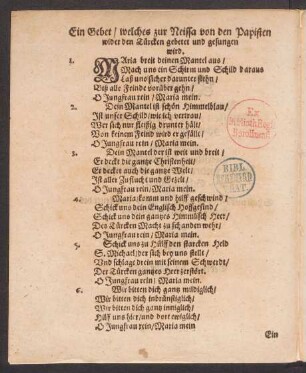 Ein Gebet / welches zur Neissa von den Papisten
wider den Türcken gebetet und gesungen
wird.
1. MAria breit deinen Mantel aus /
Mach uns ein Schirm und Schild daraus
Laß uns sicher darunter stehn /
Biß alle Feinde vorüber gehn /
O Jungfrau rein / Maria mein.
2. Dein Mantel ist schön Himmelblau /
Ist unser Schild / wie ich vertrau /
Wer sich nur fleissig drunter hält /
Von keinem Feind wird er gefällt /
O Jungfrau rein / Maria mein.
3. Dein Mantel der ist weit und breit /
Er deckt die gantze Christenheit /
Er decket auch die gantze Welt /
Ist aller Zuflucht und Gezelt /
O Jungfrau rein / Maria mein.
4. Maria komm und hilff geschwind /
Schick uns dein Englisch Hoffgesind /
Schick uns dein gantzes Himmlisch Heer /
Den Türcken Macht zu schanden wehr /
O Jungfrau rein / Maria mein.
5. Schick uns zu Hülff den starcken Held
S. Michael / der sich bey uns stellt /
Und schlage drein mit seinem Schwerdt /
Der Türcken gantzes Heer zerstört.
O Jungfrau rein / Maria mein.
6. Wir bitten dich gantz mildiglich /
Wir bitten dich inbrünstiglich /
Wir bitten dich gantz inniglich /
Hilf uns hier / und dort ewiglich /
O Jungfrau rein / Maria mein
Ein
Ex
Biblioth. Reg.
Berolinen
BIBL.